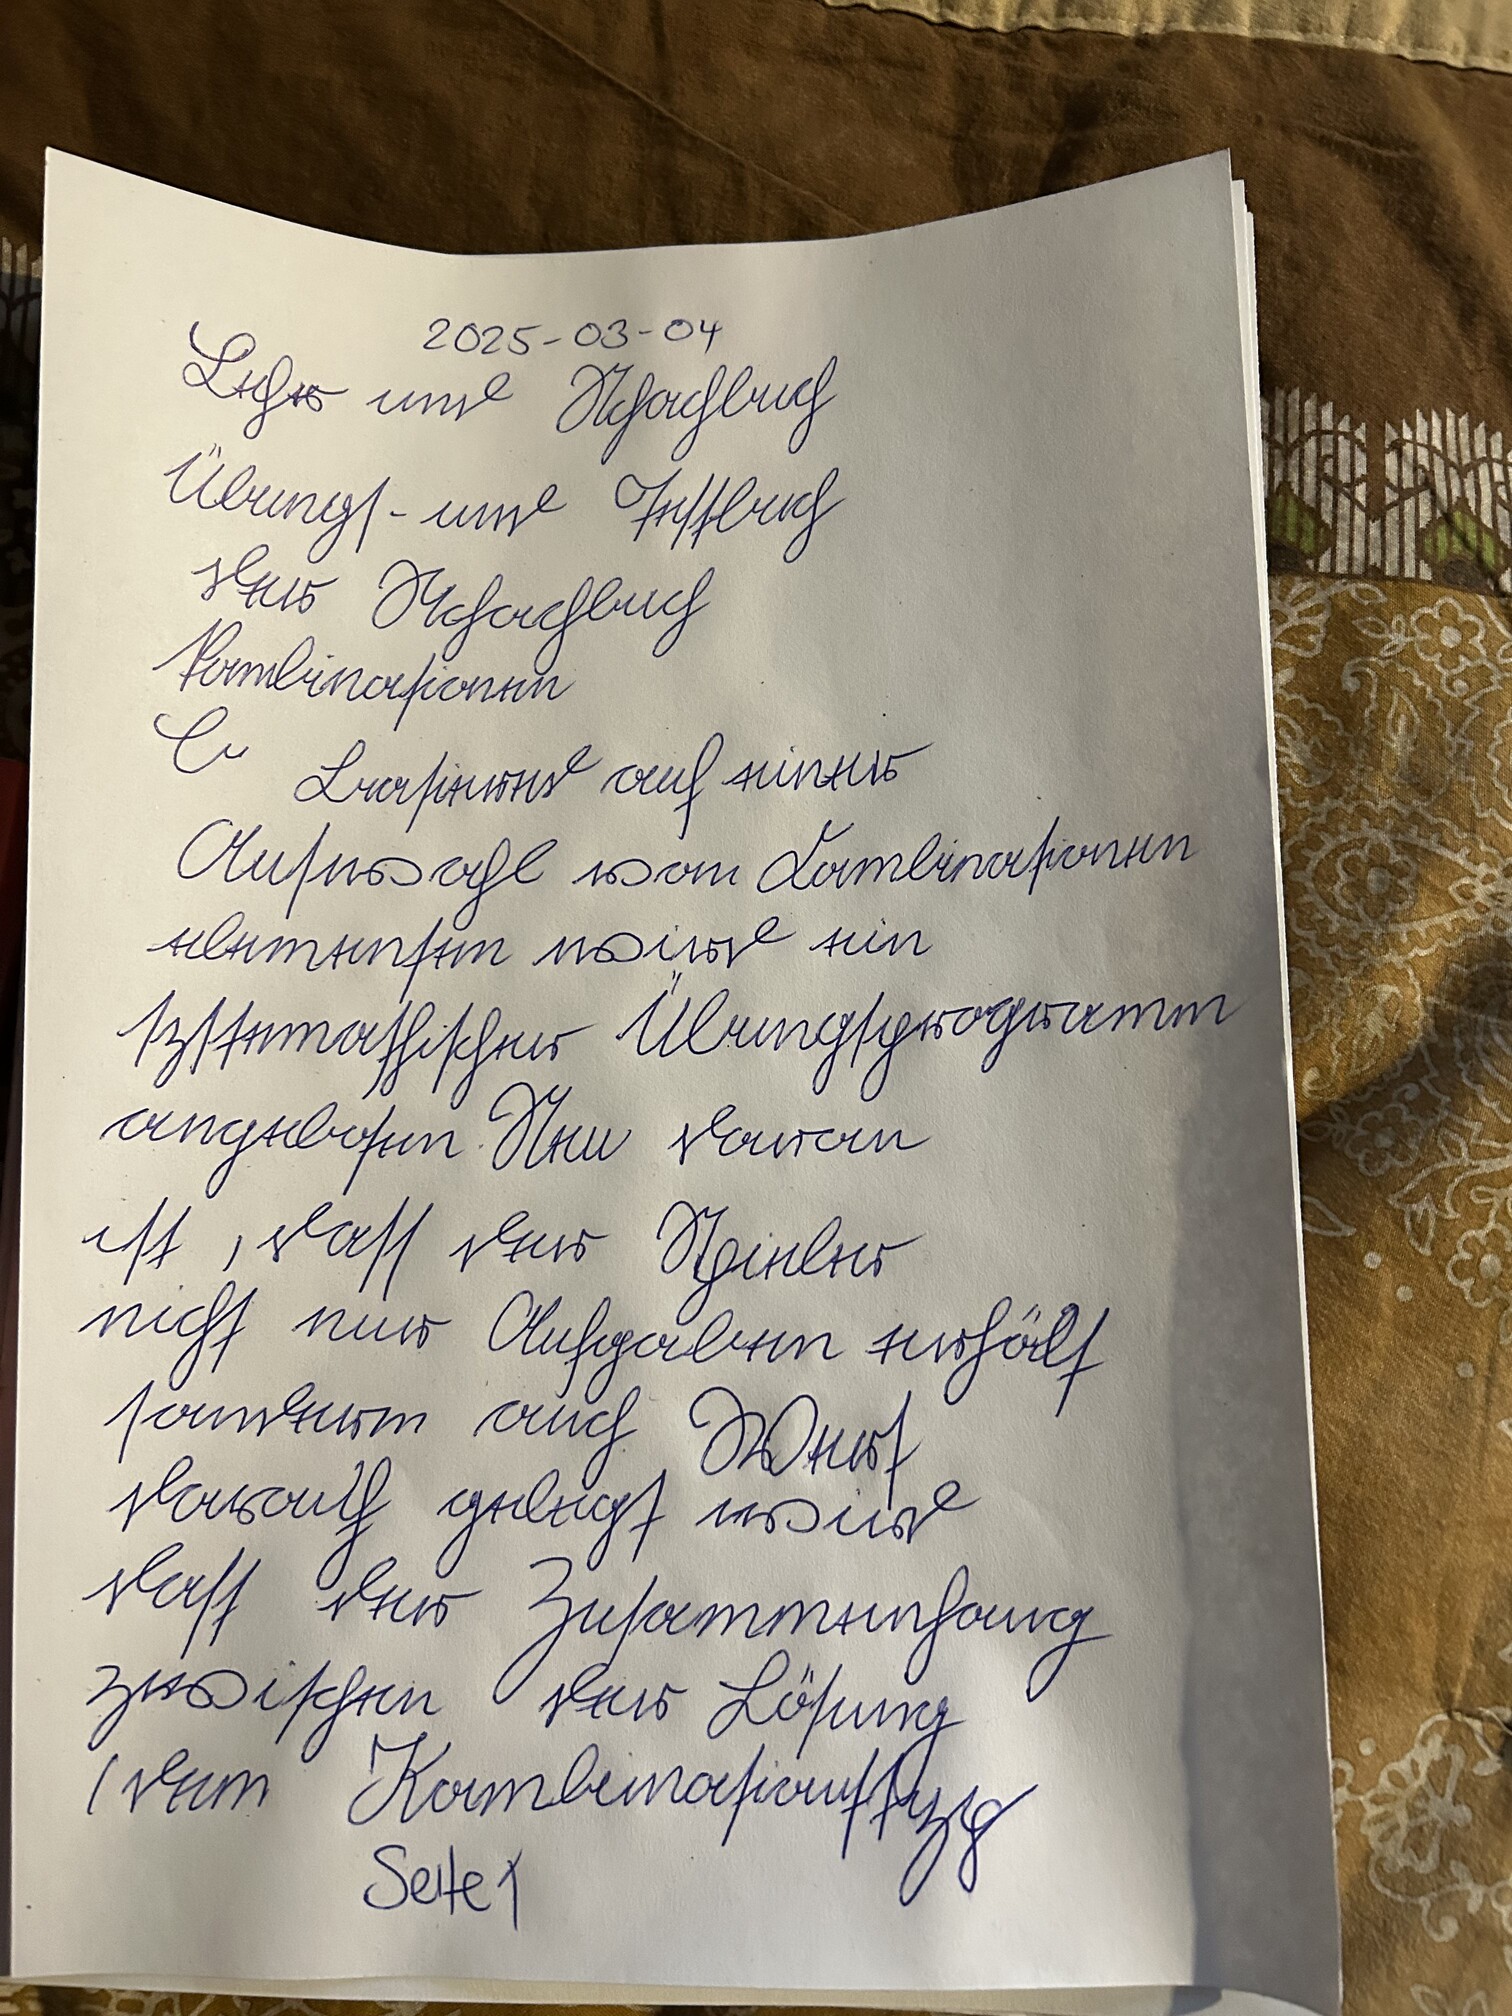 2025-03-04
Lehr und Schachbuch
Übungs- und Testbuch
der Schachbuch
Kombinationen
Basierend auf einer
Auswahl von Kombinationen
elementen wird ein
systematischer Übungsprogramm
angeboten. Neu daran
ist, dass der Spieler
nicht nur Aufgaben erhält
sondern auch Wert
darauf gelegt wird
dass der Zusammenhang
zwischen der Lösung
(dem Kombinationst
Seite 1